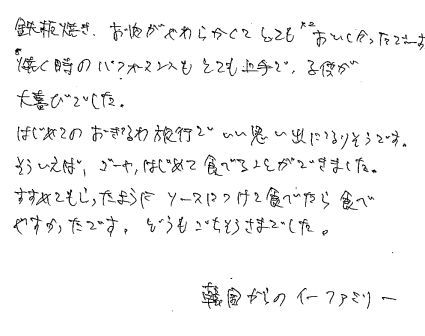 鉄板焼き、お肉がやわらかくてとてもおいしかったでーす
焼く時のパフォーマンスもとても上手で、子供が
大喜びでした。
はじめてのおきなわ旅行でいい思い出になりそうです。
そういえば、ゴーヤ、はじめて食べることができました。
すすめてもらったようにソースにつけて食べたら食べ
やすかったです。どうもごちそうさまでした。
韓国からのイーファミリー